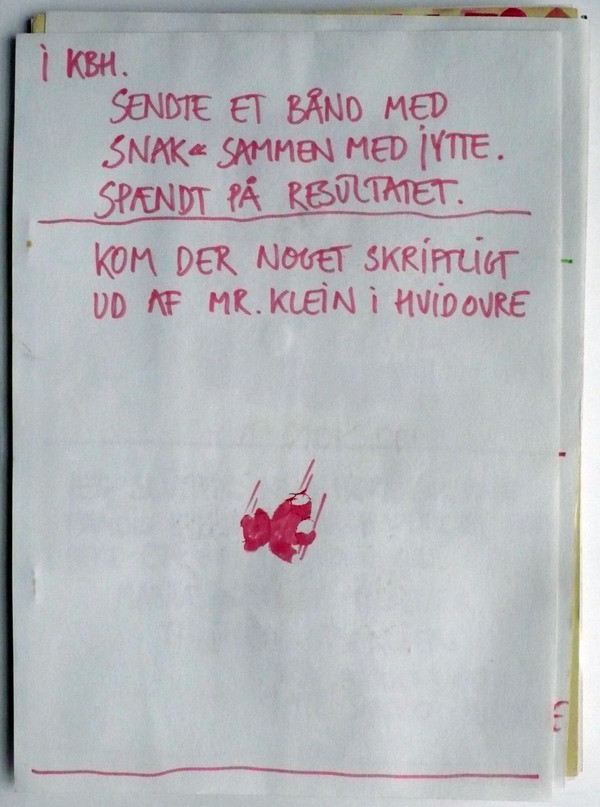 I KBH.
SENDTE ET BÅND MED
SNAK" SAMMEN MED JYTTE.
SPÆNDT PÅ RESULTATET.
KOM DER NOGET SKRIFTLIGT
UD AF MR. KLEIN I HVIDOVRE
E